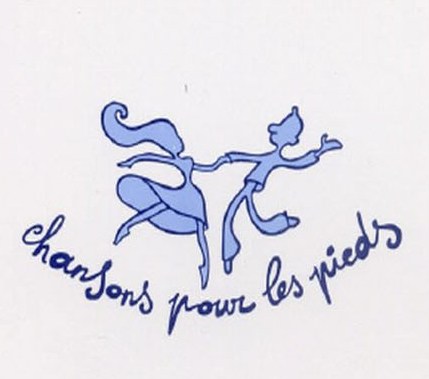 chansons pour les pieds